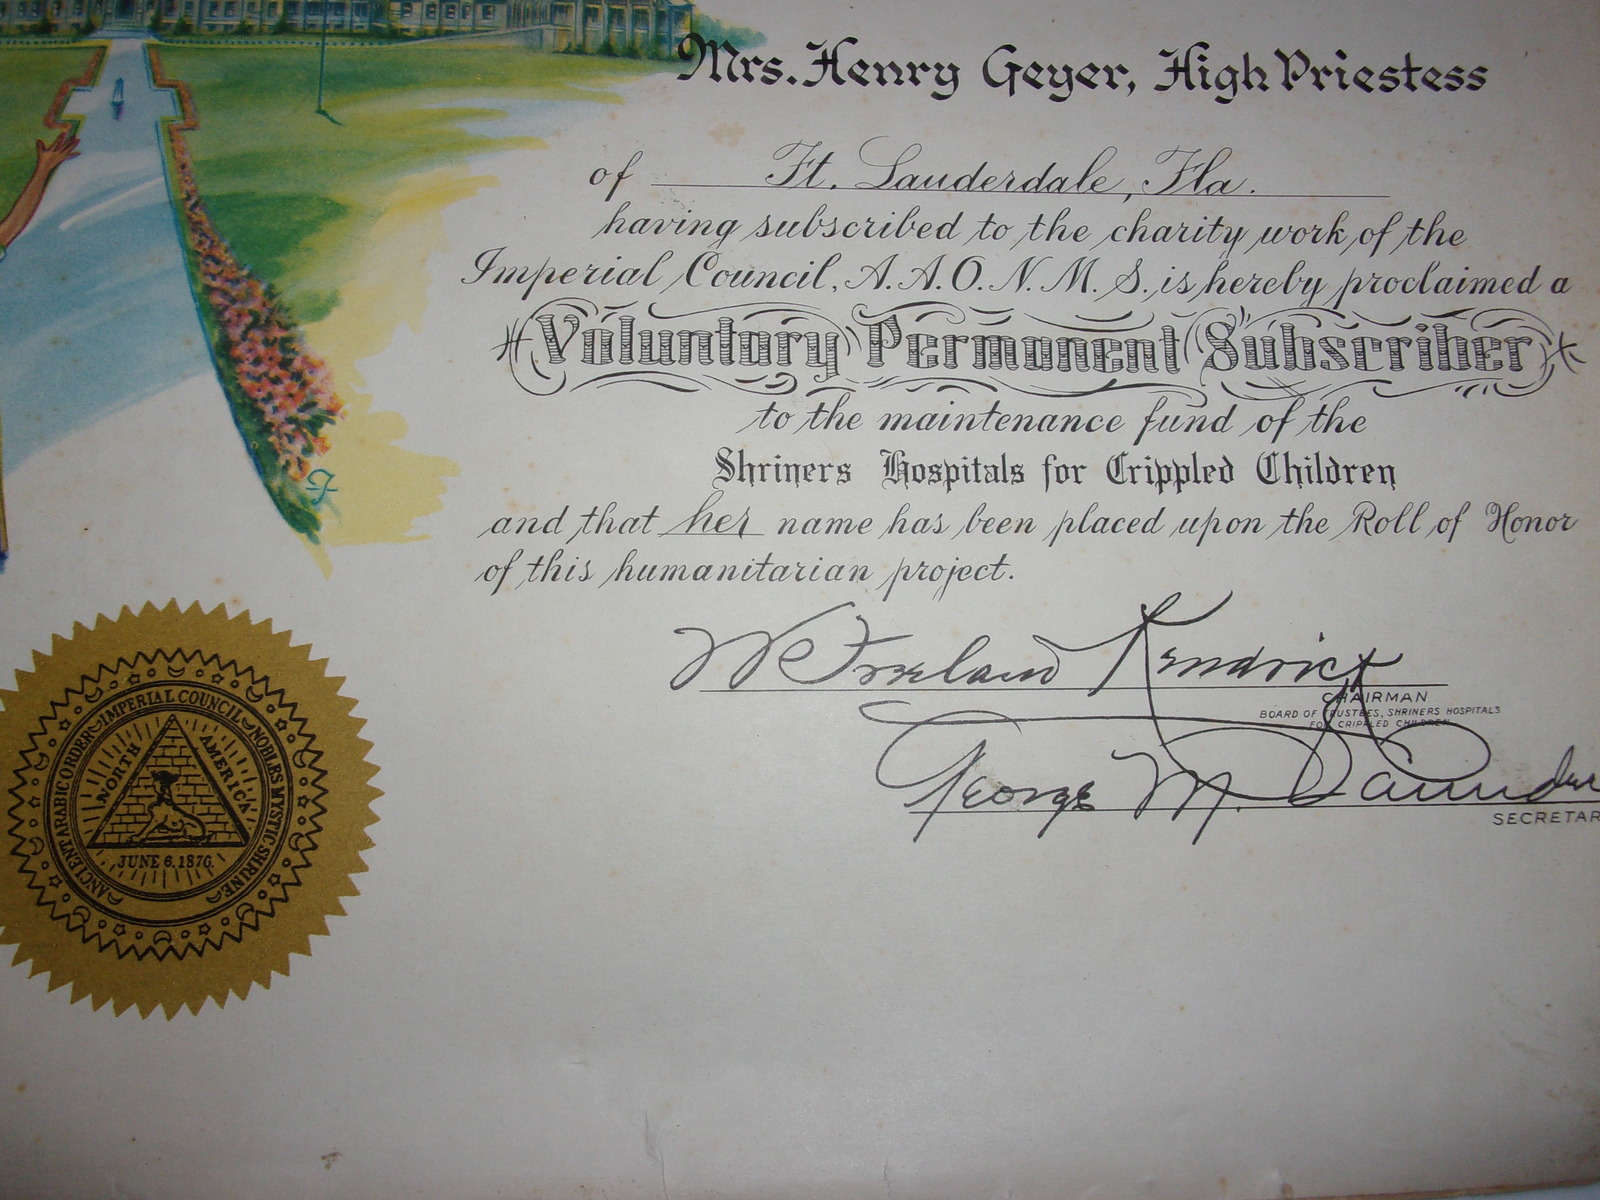 Mrs. Henry Geyer, High Priestess
of Ft. Lauderdale, Fla.
having subscribed to the charity work of the
Imperial Council, A. A. O. N. M. S. is hereby proclaimed a
Voluntary Permanent Subscriber
to the maintenance fund of the
Shriners Hospitals for Crippled Children
and that her name has been placed upon the Roll of Honor
of this humanitarian project.
W Freeland Kendrick
CHAIRMAN
BOARD OF TRUSTEES, SHRINERS HOSPITALS
FOR CRIPPLED CHILDREN
George M. Saunder
SECRETAR
IMPERIAL COUNCIL
ANCIENT ARABIC ORDER NOBLES MYSTIC SHRINE
NORTH AMERICA
JUNE 6, 1876.